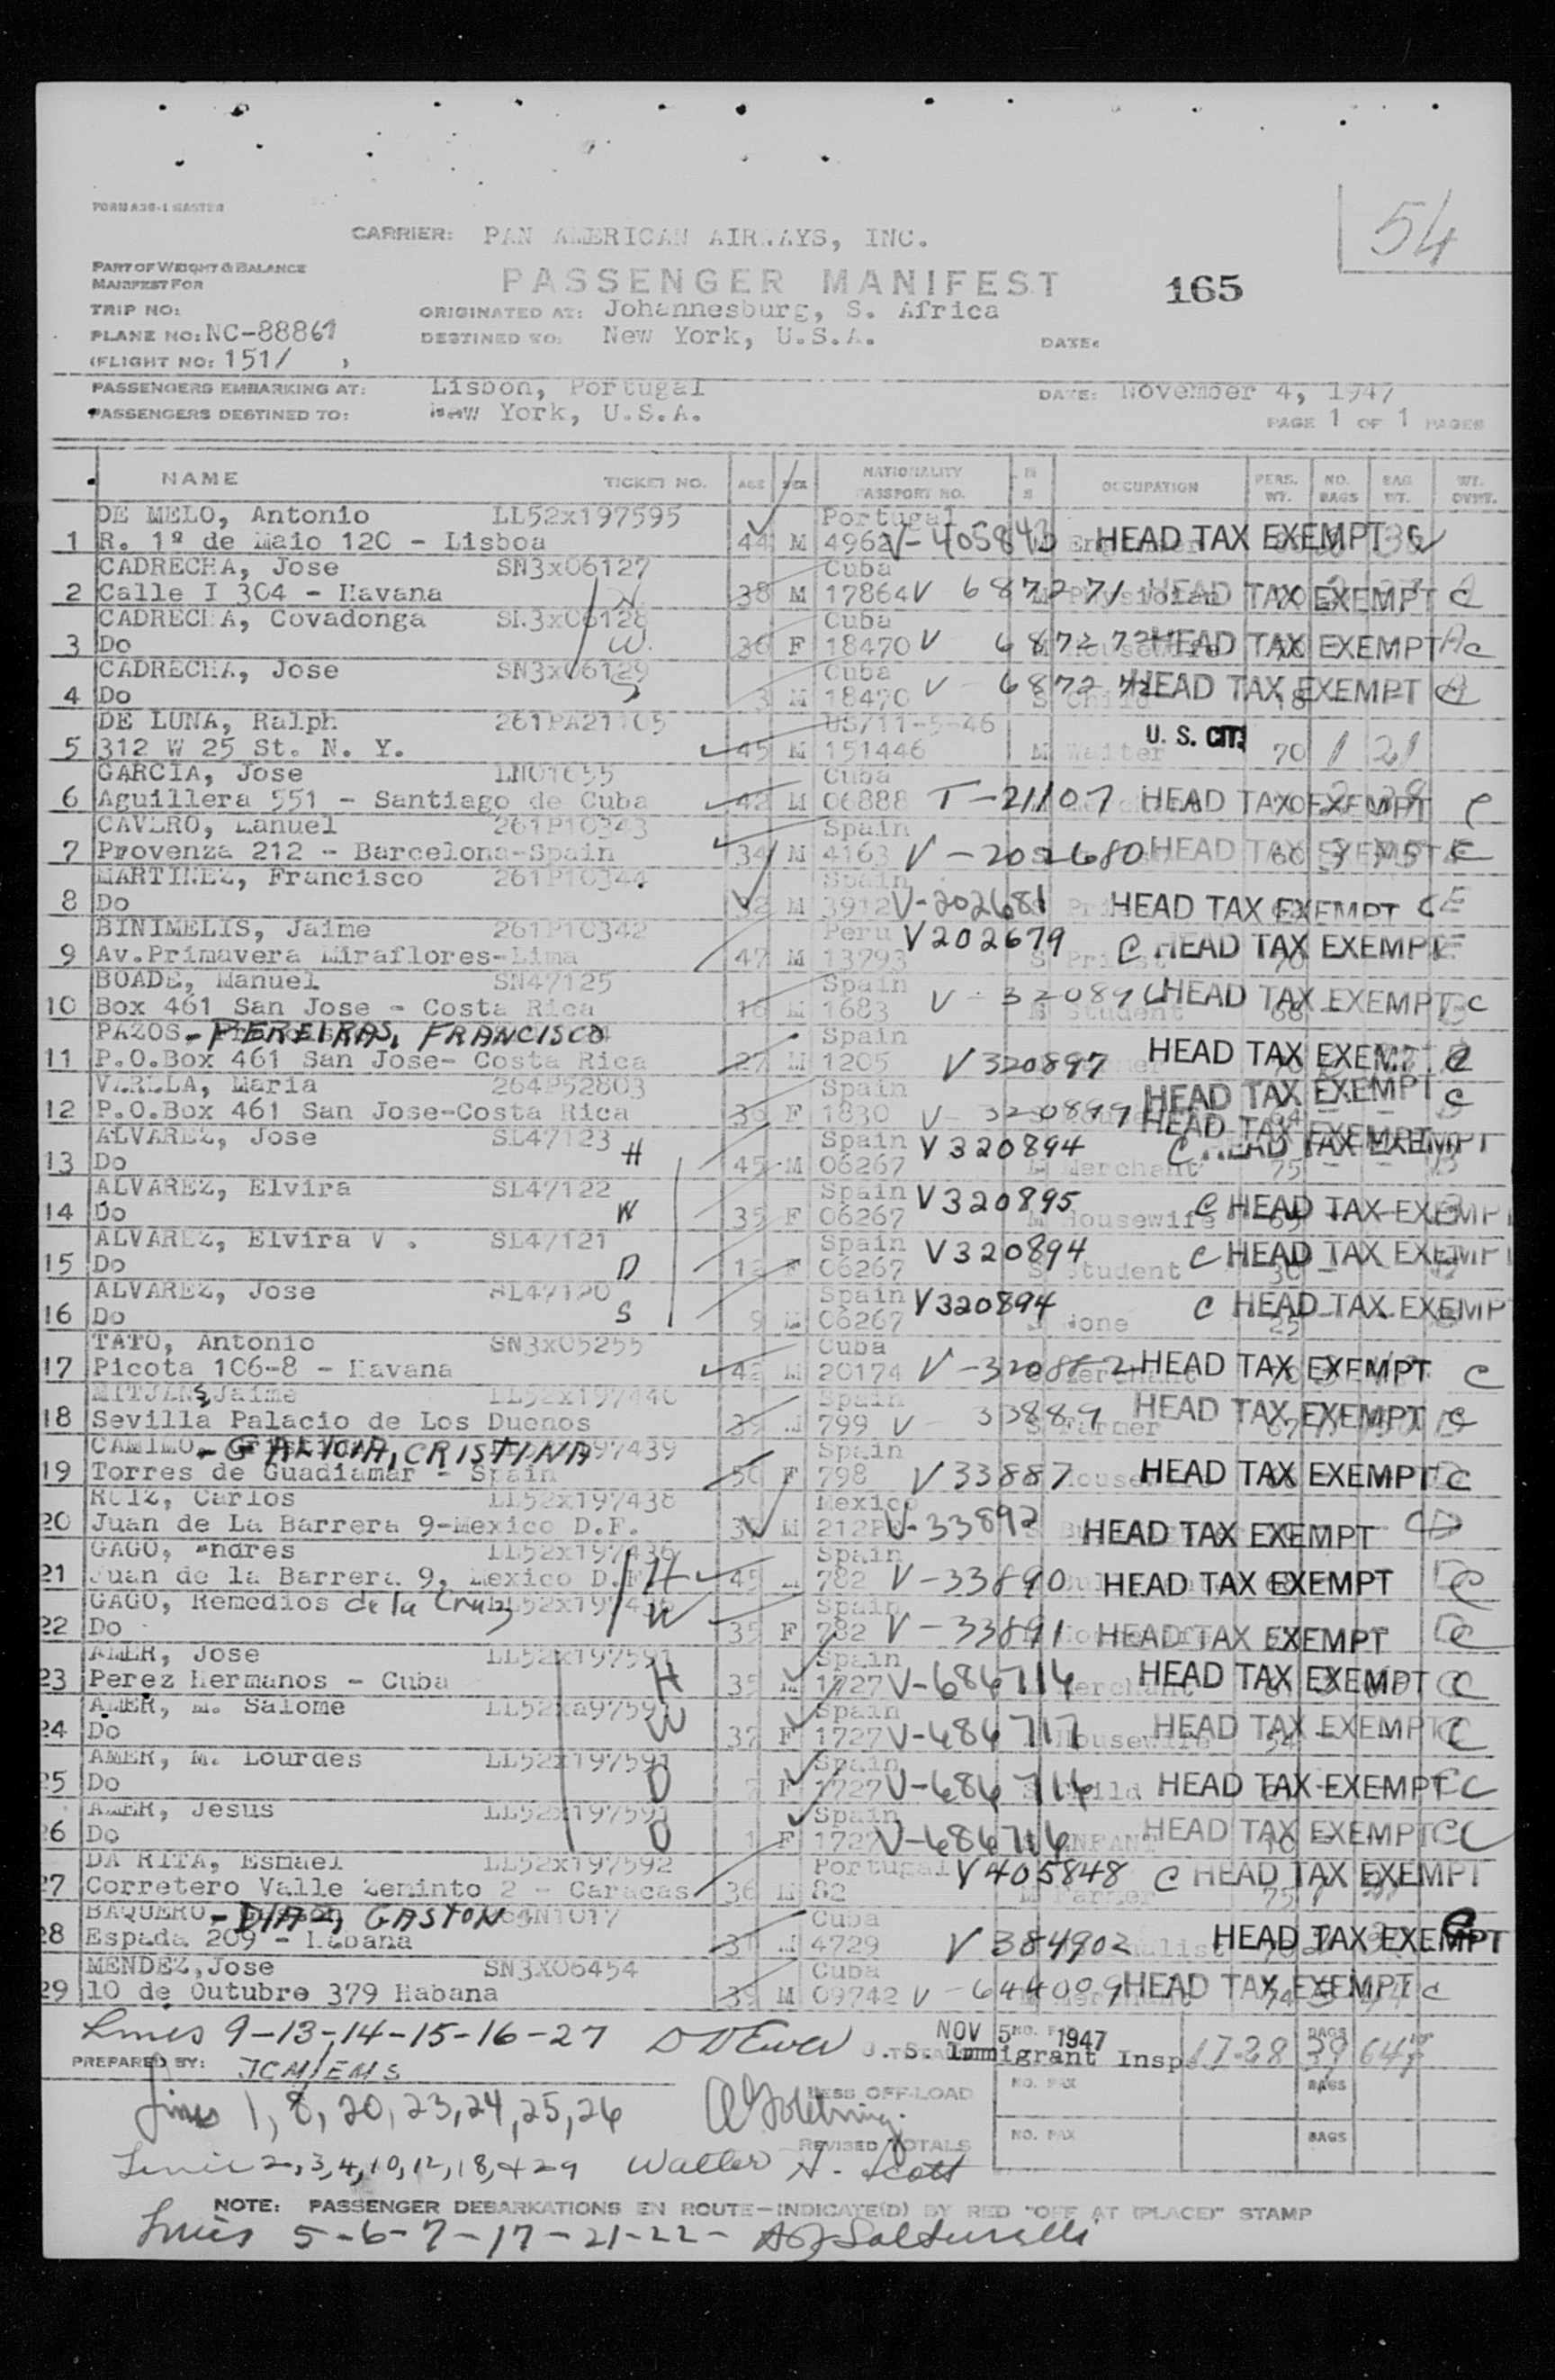 FORM A38-1 MASTER
54
CARRIER: PAN AMERICAN AIRWAYS, INC.
PART OF WEIGHT & BALANCE
MANIFEST FOR
PASSENGER MANIFEST 165
TRIP NO:
ORIGINATED AT: Johannesburg, S. Africa
PLANE NO: NC-88861
DESTINED TO: New York, U.S.A. DATE:
(FLIGHT NO: 151/ )
PASSENGERS EMBARKING AT: Lisbon, Portugal DATE: November 4, 1947
PASSENGERS DESTINED TO: New York, U.S.A.
PAGE 1 OF 1 PAGES
NAME TICKET NO. AGE SEX NATIONALITY PASSPORT NO. M S OCCUPATION PERS. WT. NO. BAGS BAG WT. WT. OVPT.
DE MELO, Antonio LL52x197595 Portugal
1 R. 1º de Maio 120 - Lisboa 44 M 4962 V-405843 HEAD TAX EXEMPT C
CADRECHA, Jose SN3x06127 Cuba
2 Calle I 304 - Havana 38 M 17864 V 687271 Physician HEAD TAX EXEMPT C
CADRECHA, Covadonga SN3x06128 Cuba
3 Do W 36 F 18470 V 687272 HEAD TAX EXEMPT C
CADRECHA, Jose SN3x06129 Cuba
4 Do S 3 M 18470 V 687272 S Child HEAD TAX EXEMPT C
DE LUNA, Ralph 261PA21105 US/11-5-46
5 312 W 25 St. N. Y. 45 M 151446 M Waiter U. S. CIT. 70 1 21
GARCIA, Jose LN01655 Cuba
6 Aguillera 551 - Santiago de Cuba 42 M 06888 T-21107 HEAD TAX EXEMPT C
CAVERO, Manuel 261P10343 Spain
7 Provenza 212 - Barcelona-Spain 34 M 4163 V-202680 HEAD TAX EXEMPT C
MARTINEZ, Francisco 261P10344 Spain
8 Do 32 M 3912 V-202681 HEAD TAX EXEMPT C E
BINIMELIS, Jaime 261P10342 Peru V202679
9 Av.Primavera Miraflores-Lima 47 M 13793 S Priest C HEAD TAX EXEMPT
BOADE, Manuel SN47125 Spain
10 Box 461 San Jose - Costa Rica 16 M 1683 V-320896 Student HEAD TAX EXEMPT C
PAZOS - PEREIRAS, FRANCISCO Spain
11 P.O.Box 461 San Jose- Costa Rica 27 M 1205 V320897 HEAD TAX EXEMPT C
VARELA, Maria 264P52803 Spain
12 P.O.Box 461 San Jose-Costa Rica F 1830 V-320899 HEAD TAX EXEMPT C
HEAD TAX
ALVAREZ, Jose SL47123 H Spain V320894
13 Do 45 M 06267 M Merchant C HEAD TAX EXEMPT 75
ALVAREZ, Elvira SL47122 Spain V320895
14 Do W 35 F 06267 M Housewife C HEAD TAX EXEMPT
ALVAREZ, Elvira V . SL47121 Spain V320894
15 Do D F 06267 S Student C HEAD TAX EXEMPT
ALVAREZ, Jose SL47120 Spain V320894
16 Do S 9 M 06267 S None 25 C HEAD TAX EXEMPT
TATO, Antonio SN3x05255 Cuba
17 Picota 106-8 - Havana 42 M 20174 V-320882 Merchant HEAD TAX EXEMPT C
MITJANS, Jaime LL52x197440 Spain
18 Sevilla Palacio de Los Duenos 39 M 799 V-33889 S Farmer HEAD TAX EXEMPT C
CAMIMO - GALVIA, CRISTINA 97439 Spain
19 Torres de Guadiamar - Spain 50 F 798 V33887 HEAD TAX EXEMPT C
RUIZ, Carlos LL52x197438 Mexico
20 Juan de La Barrera 9-Mexico D.F. M 212P V-33892 HEAD TAX EXEMPT C D
GAGO, Andres LL52x197436 Spain
21 Juan de la Barrera 9, Mexico D.F. H 45 M 782 V-33890 HEAD TAX EXEMPT C
GAGO, Remedios de la Cruz Spain
22 Do W 35 F 782 V-33891 HEAD TAX EXEMPT C
AMER, Jose LL52x197591 Spain
23 Perez Hermanos - Cuba H 35 M 1727 V-686716 Merchant HEAD TAX EXEMPT C
AMER, M. Salome LL52xa97591 Spain
24 Do W 37 F 1727 V-686717 Housewife HEAD TAX EXEMPT C
AMER, M. Lourdes LL52x197591 Spain
25 Do D 7 F 1727 V-686716 Child HEAD TAX EXEMPT C
AMER, Jesus LL52x197591 Spain
26 Do D 1 F 1727 V-686716 INFANT HEAD TAX EXEMPT C
DA RITA, Esmael LL52x197592 Portugal V405848
27 Corretero Valle Zeminto 2 - Caracas 36 M 82 M Farmer C HEAD TAX EXEMPT
BAQUERO - DIAZ, GASTON Cuba
28 Espada 209 - Habana 31 M 4729 V384902 HEAD TAX EXEMPT
MENDEZ, Jose SN3X06454 Cuba
29 10 de Outubre 379 Habana 39 M 09742 V-644009 HEAD TAX EXEMPT C
Lines 9-13-14-15-16-27 NOV 5 1947
U. S. Immigrant Insp.
PREPARED BY: JCM/EMS
Lines 1, 8, 20, 23, 24, 25, 26
LESS OFF-LOAD NO. PAX BAGS
REVISED TOTALS NO. PAX BAGS
Lines 2, 3, 4, 10, 12, 18, & 29 Walter A. Scott
NOTE: PASSENGER DEBARKATIONS EN ROUTE—INDICATE(D) BY RED "OFF AT (PLACE)" STAMP
Lines 5-6-7-17-21-22-